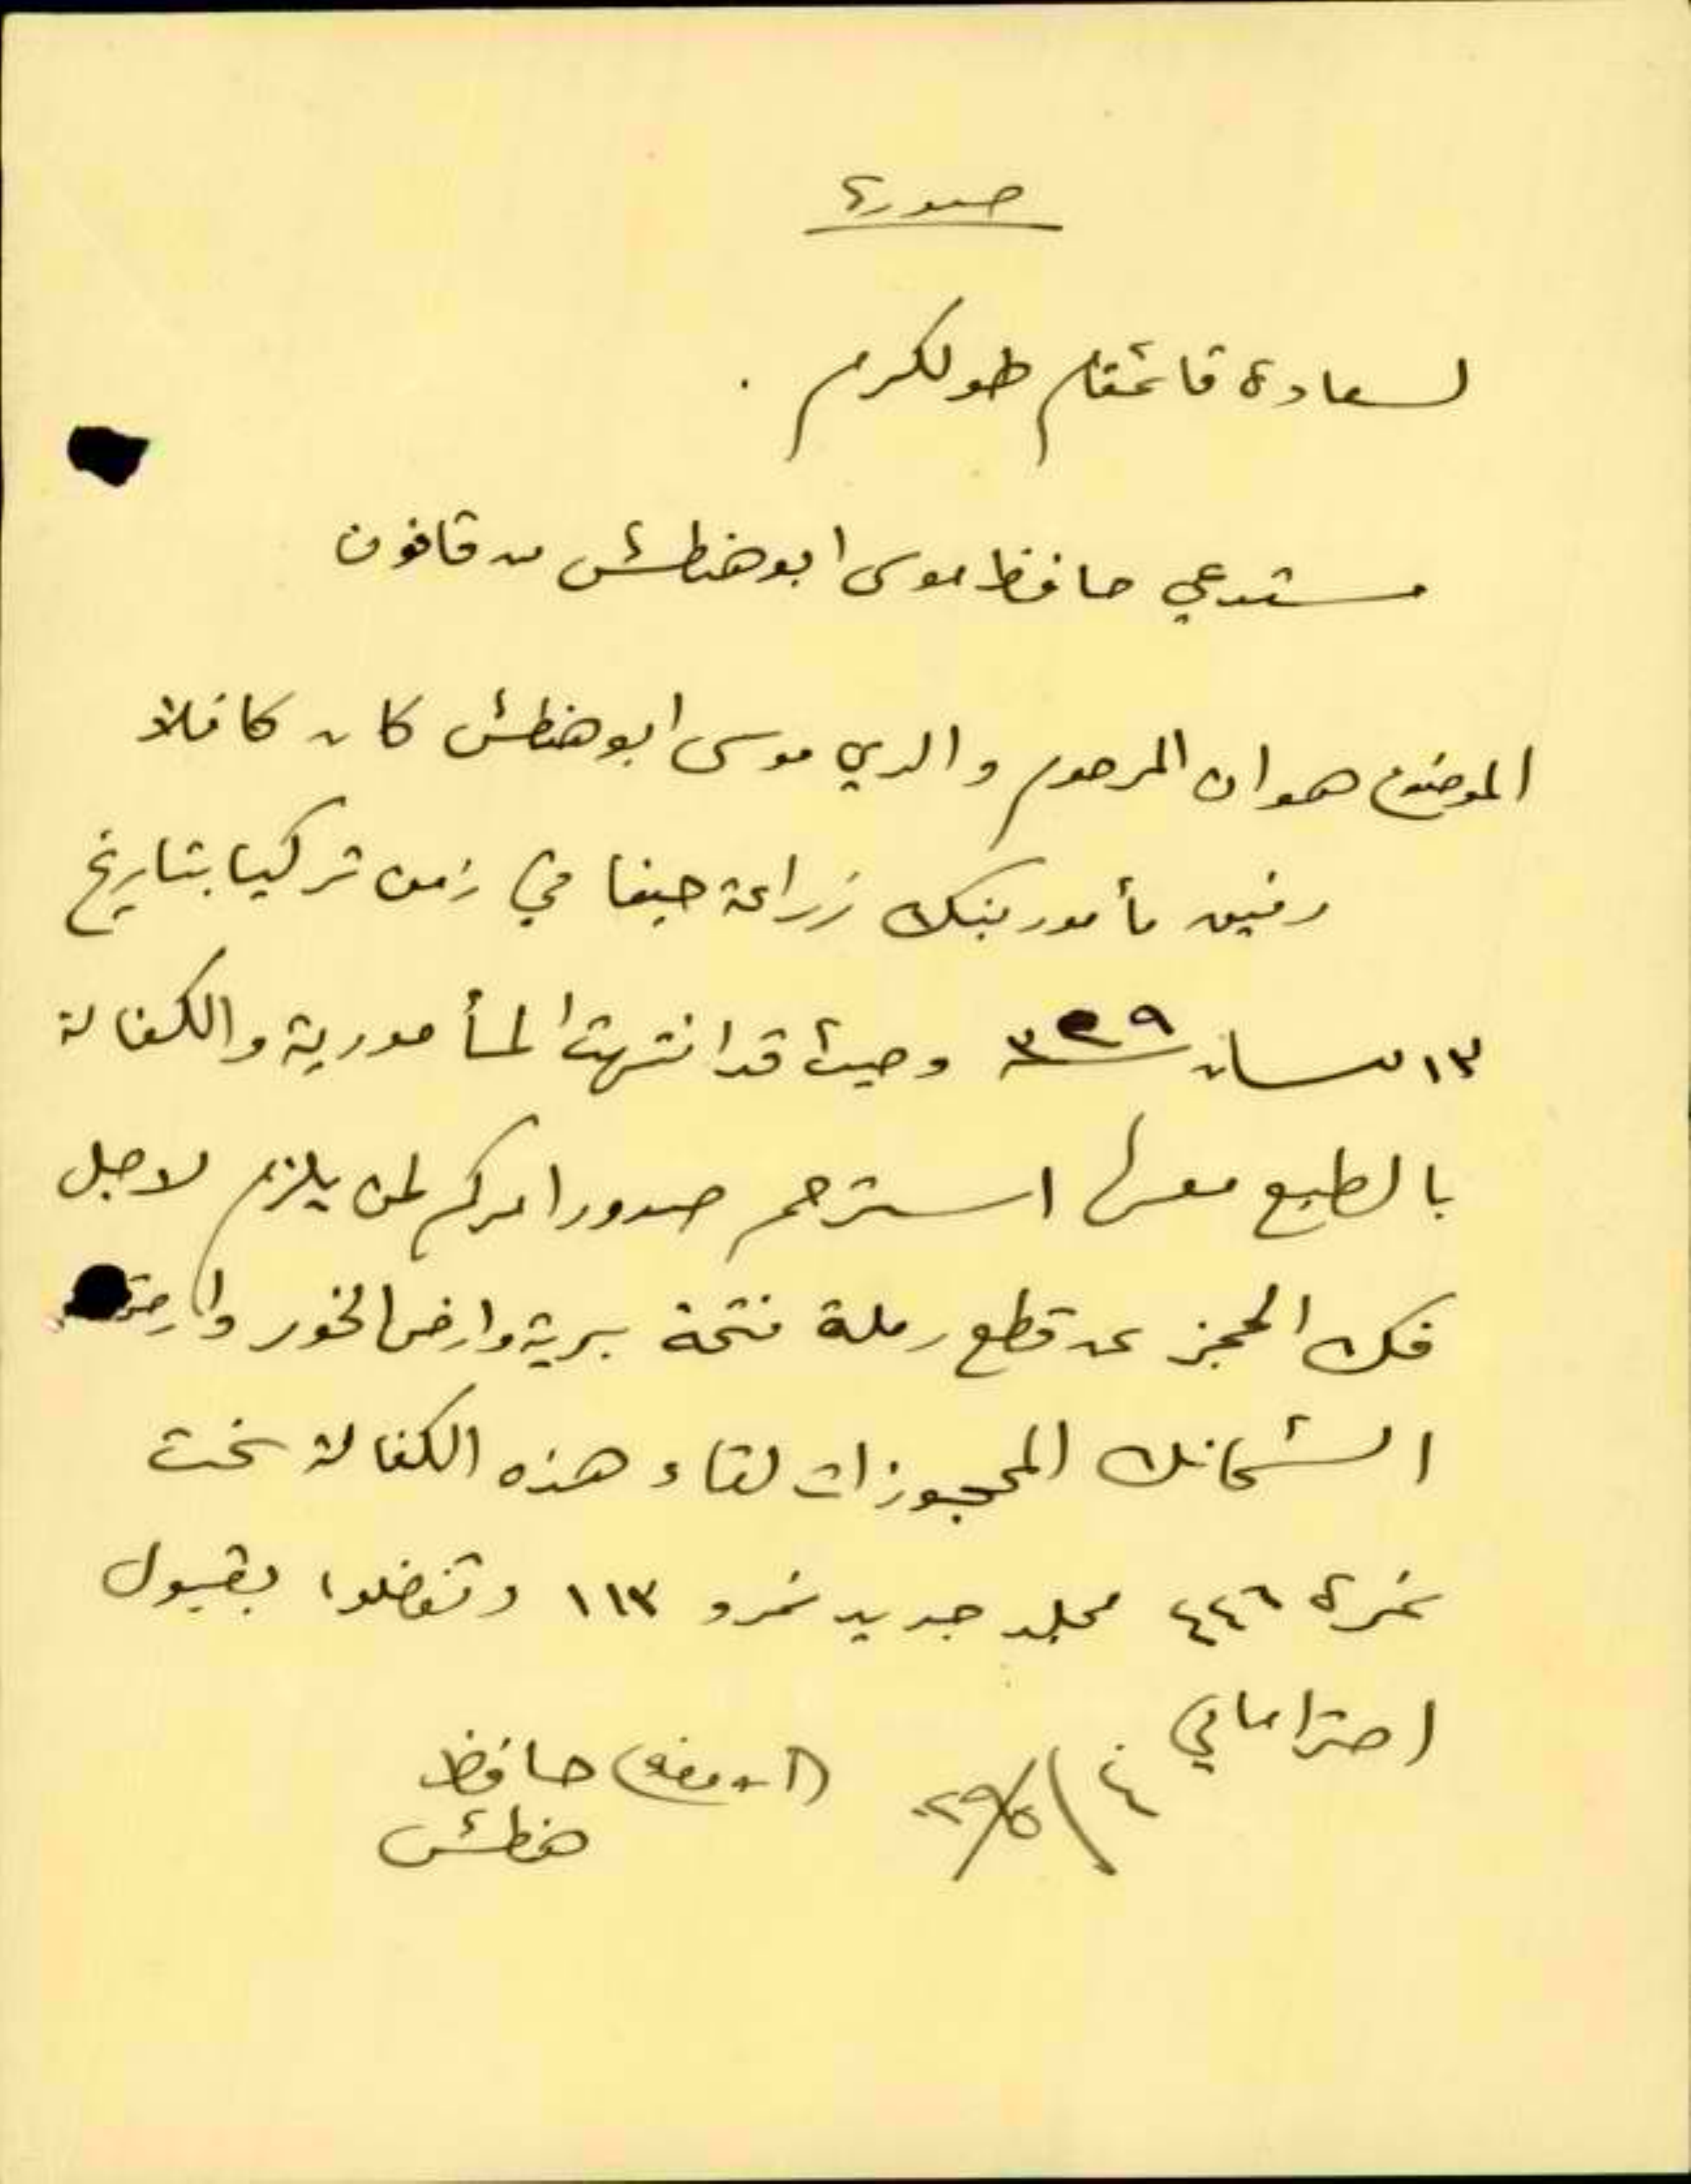 صورة
لسعادة قائمقام طولكرم .
مستدعي حافظ موسى ابو هنطش من قاقون
الموضوع هو ان المرحوم والدي موسى ابو هنطش كان كافلا
رفيق مأمور بنك زراعة حيفا في زمن تركيا بتاريخ
١٣ نيسان ٣٢٩ وحيث قد انتهت المأمورية والكفالة
بالطبع معها استرحم صدور امركم لمن يلزم لاجل
فك الحجز عن قطع رملة فتحة برية وارض الخور وارض
المحجوزات لقاء هذه الكفالة تحت
نمرة ٤٤٦ مجلد جديد نمرو ١١٣ وتفضلوا بقبول
احتراماتي
حافظ
هنطش